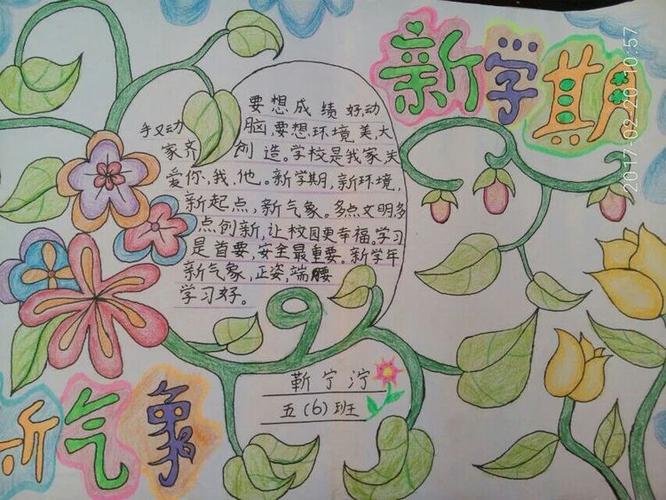 新学期
2017-02-20 10:57
要想成绩好,动
手又动脑,要想环境美,大
家齐创造。学校是我家,关
爱你、我、他。新学期,新环境,
新起点,新气象。多点文明,多
点创新,让校园更幸福。学习
是首要,安全最重要。新学年
新气象,正姿,端腰
学习好。
靳宁泞
五(6)班
新气象